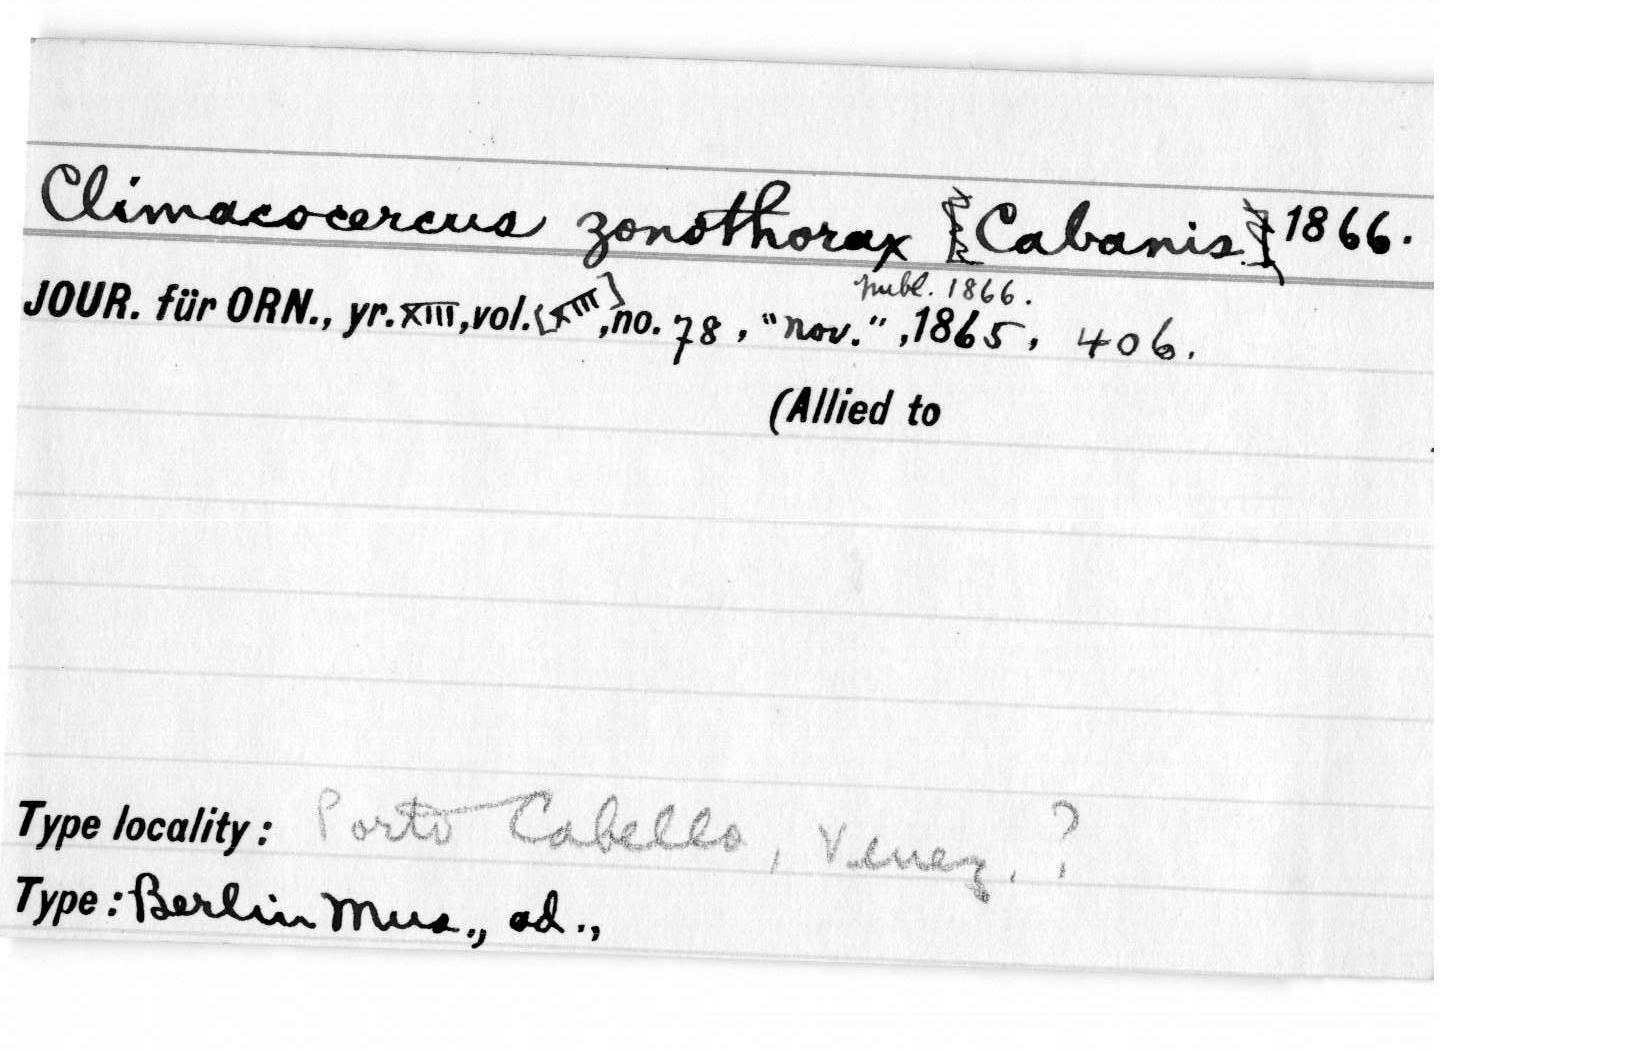 Climacocercus zonothorax [Cabanis] 1866.
publ. 1866.
JOUR. für ORN., yr. XIII, vol. [XIII], no. 78, "nov.", 1865, 406.
(Allied to
Type locality: Porto Cabello, Venez. ?
Type: Berlin Mus., ad.,